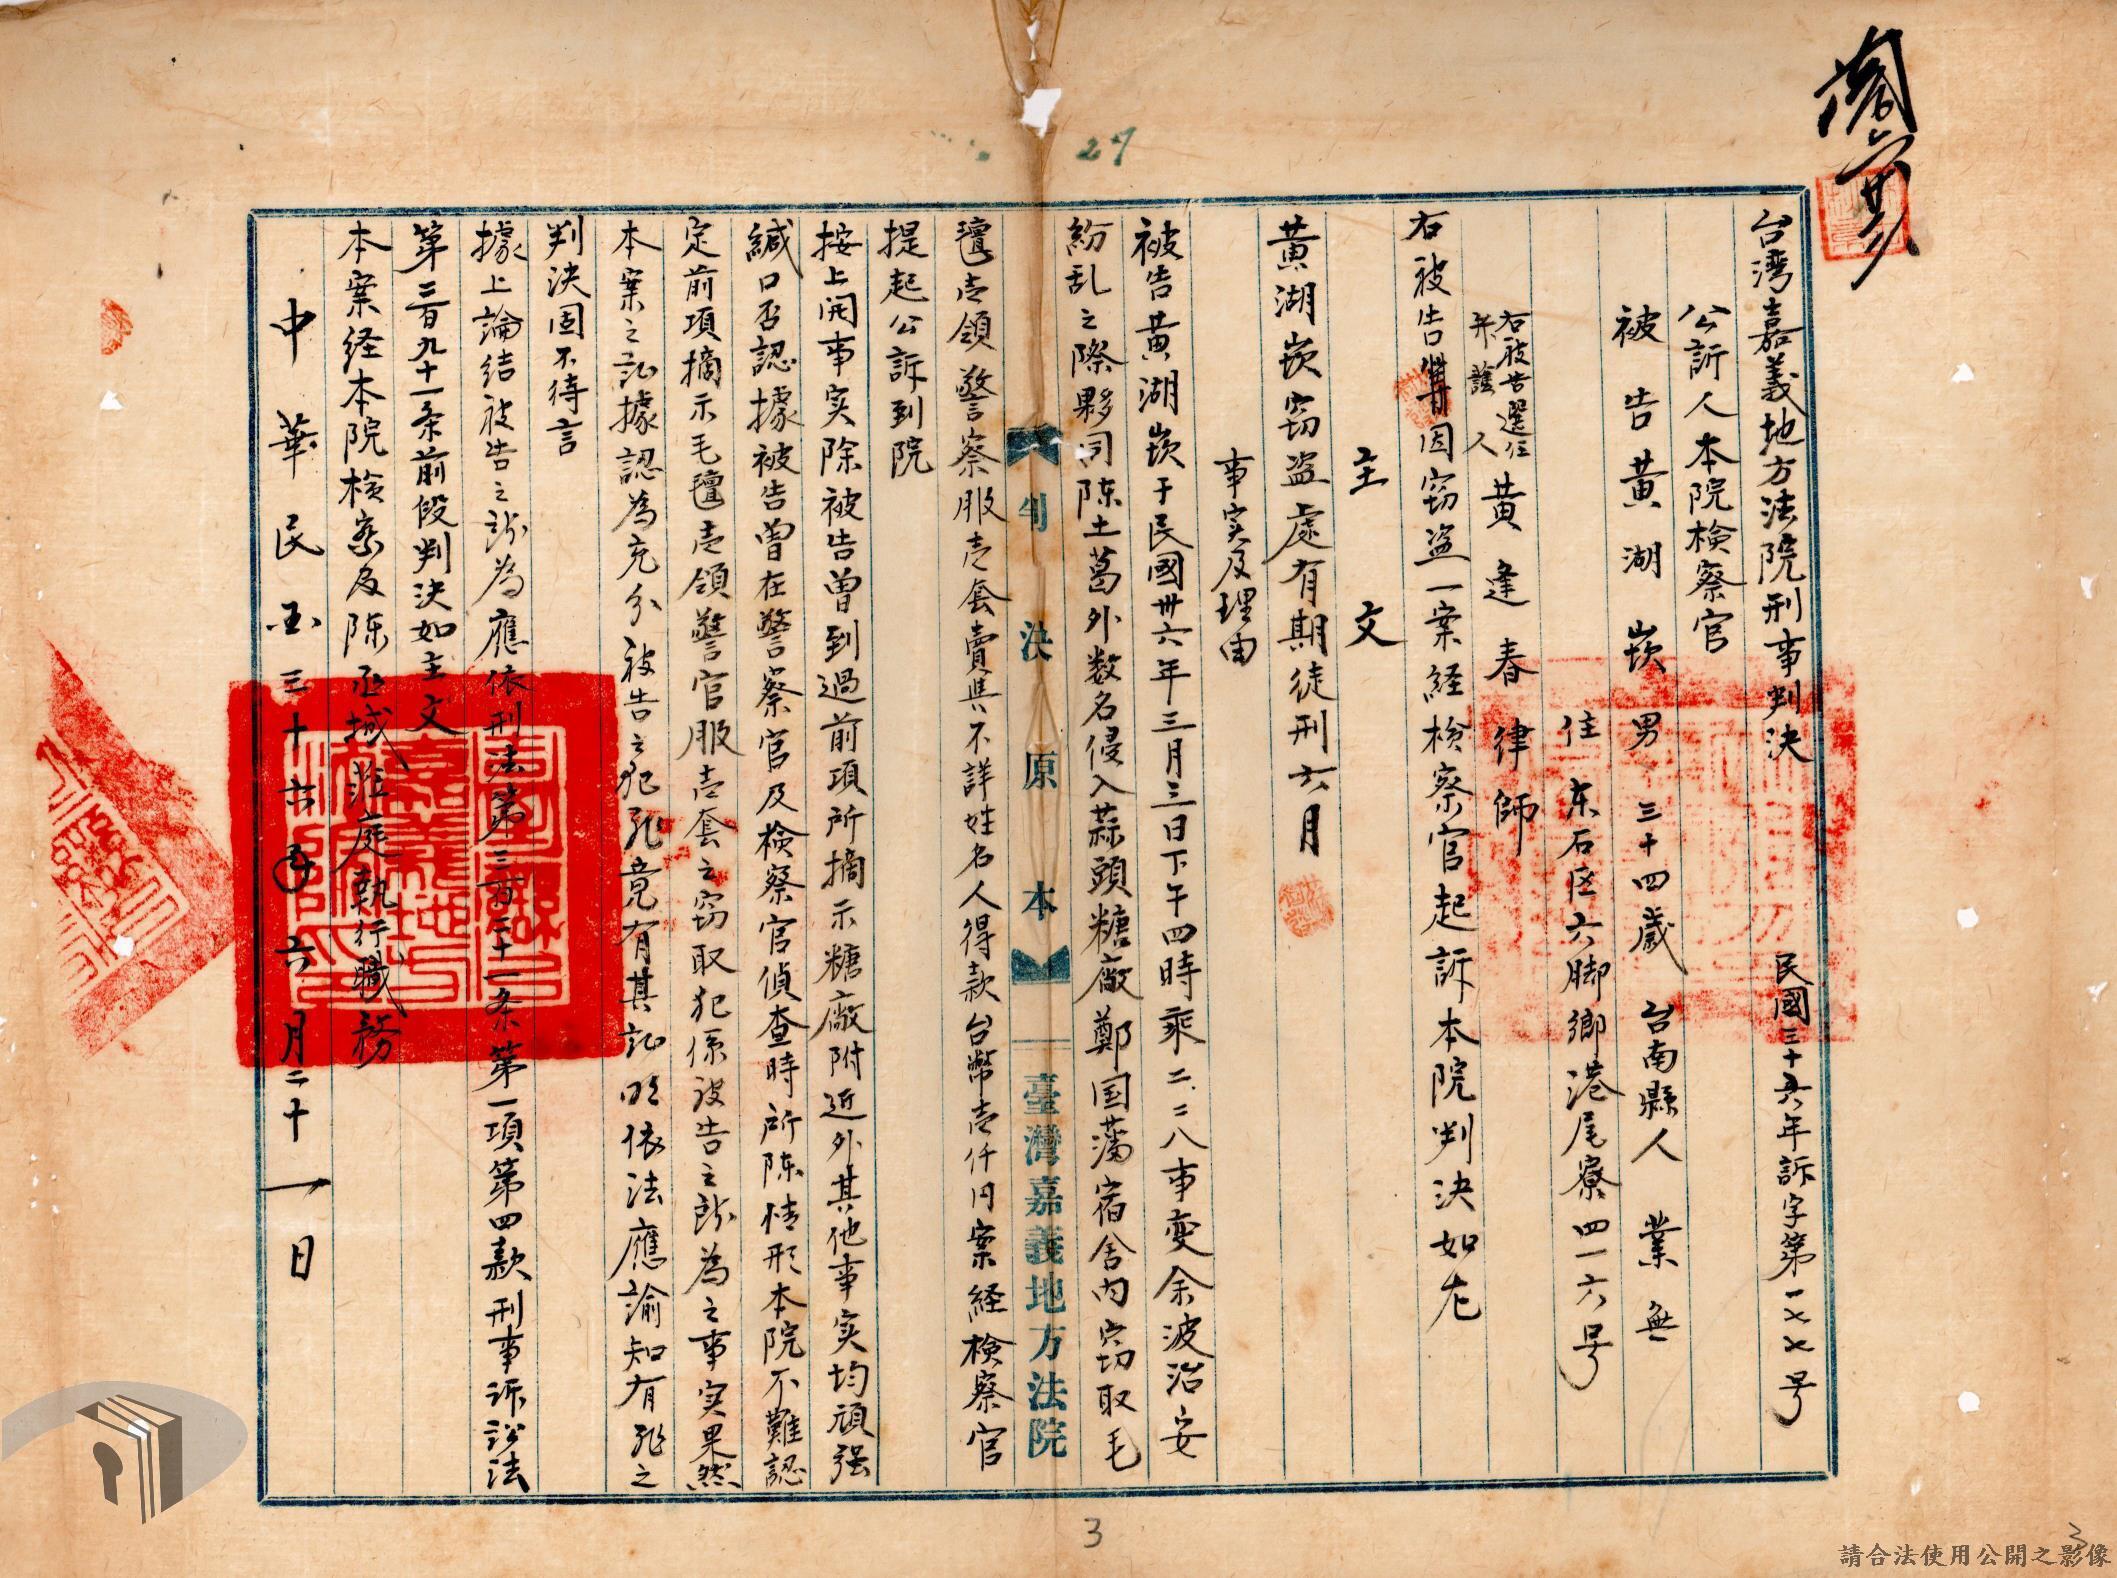 台湾嘉義地方法院刑事判決 民國三十六年訴字第一七七号
公訴人本院検察官
被告黄湖崁 男 三十四歲 台南縣人 業無
住东石区六脚鄉港尾寮四一六号
右被告選任
弁護人 黄逢春律師
右被告因窃盗一案経検察官起訴本院判決如左
主文
黄湖崁窃盗處有期徒刑六月
事実及理由
被告黄湖崁于民國卅六年三月三日下午四時乘二.二八事变余波治安
紛乱之際夥同陈土葛外数名侵入蒜頭糖廠鄭国藩宿舍内窃取毛
氊壱領警察服壱套賣與不詳姓名人得款台幣壱仟円案経検察官
提起公訴到院
按上開事実除被告曽到過前項所摘示糖廠附近外其他事实均頑强
緘口否認據被告曽在警察官及検察官偵查時所陈情形本院不難認
定前項摘示毛氊壱領警官服壱套之窃取犯係被告之所為之事実果然
本案之証據認為充分被告之犯罪竟有其証明依法應諭知有罪之
判決固不待言
據上論结被告之所為應依刑法第三百二十一条第一項第四款刑事訴訟法
第二百九十一条前段判決如主文
本案経本院検察及陈丞城蒞庭執行職務
中華民国三十六年六月二十一日
判決原本
臺灣嘉義地方法院
27
3
3
請合法使用公開之影像